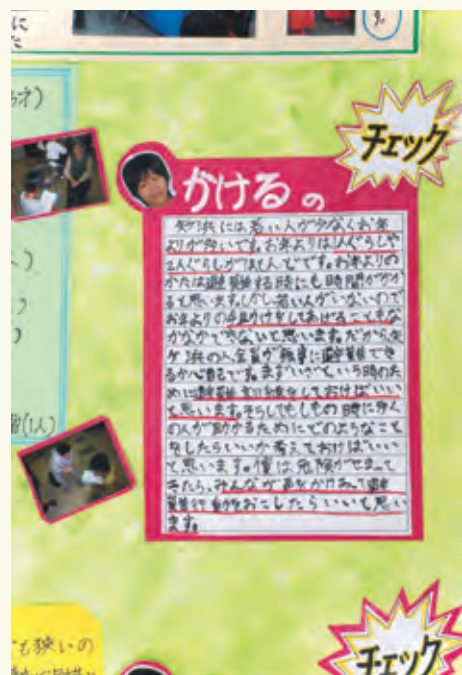 に
た
す。
才)
チェック
かけるの
矢ケ浜には若い人が少なくお年
よりが多いです。お年よりは1人ぐらしや
2人ぐらしがほとんどです。お年よりの
かたは避難する時にも時間がかか
ると思います。しかし若い人がいないので
お年よりの手助けをしてあげることもな
かなかできないと思います。だから矢
ケ浜の人全員が無事に避難でき
るか心配です。まずいざという時のた
めに避難訓練をしておけばいい
と思います。そしてもしもの時に多く
の人が助かるためにどのようなこと
をしたらいいか考えておけばいい
と思います。僕は危険がせまって
きたら、みんなが声をかけあって避
難行動をおこしたらいいと思い
ます。
(1人)
も狭いの
チェック